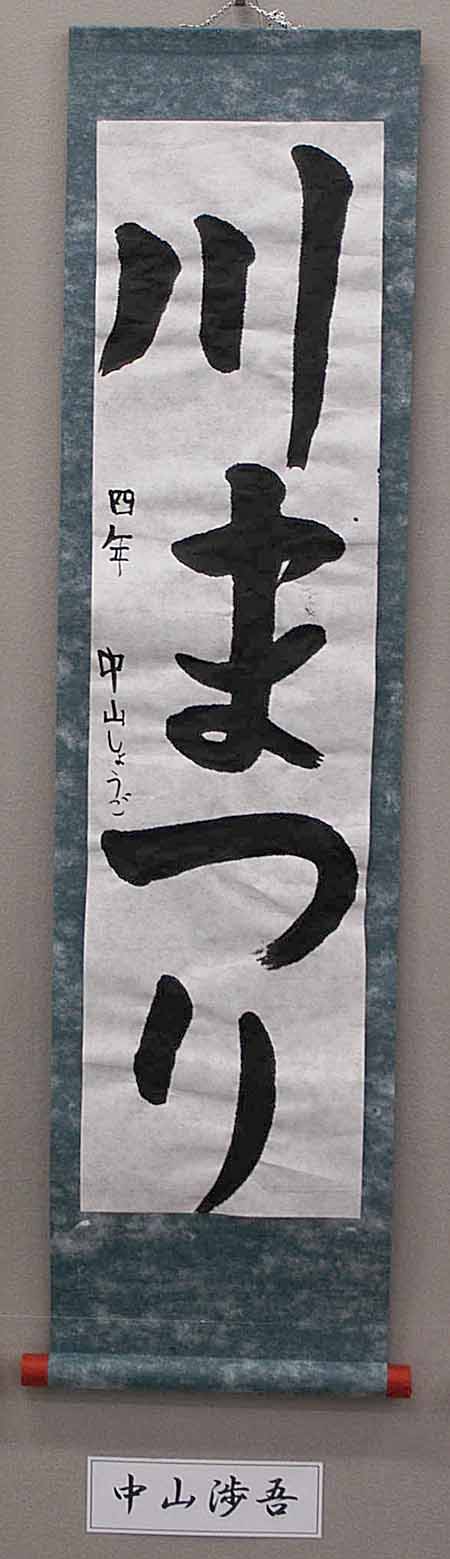 川まつり
四年 中山しょうご
中山渉吾